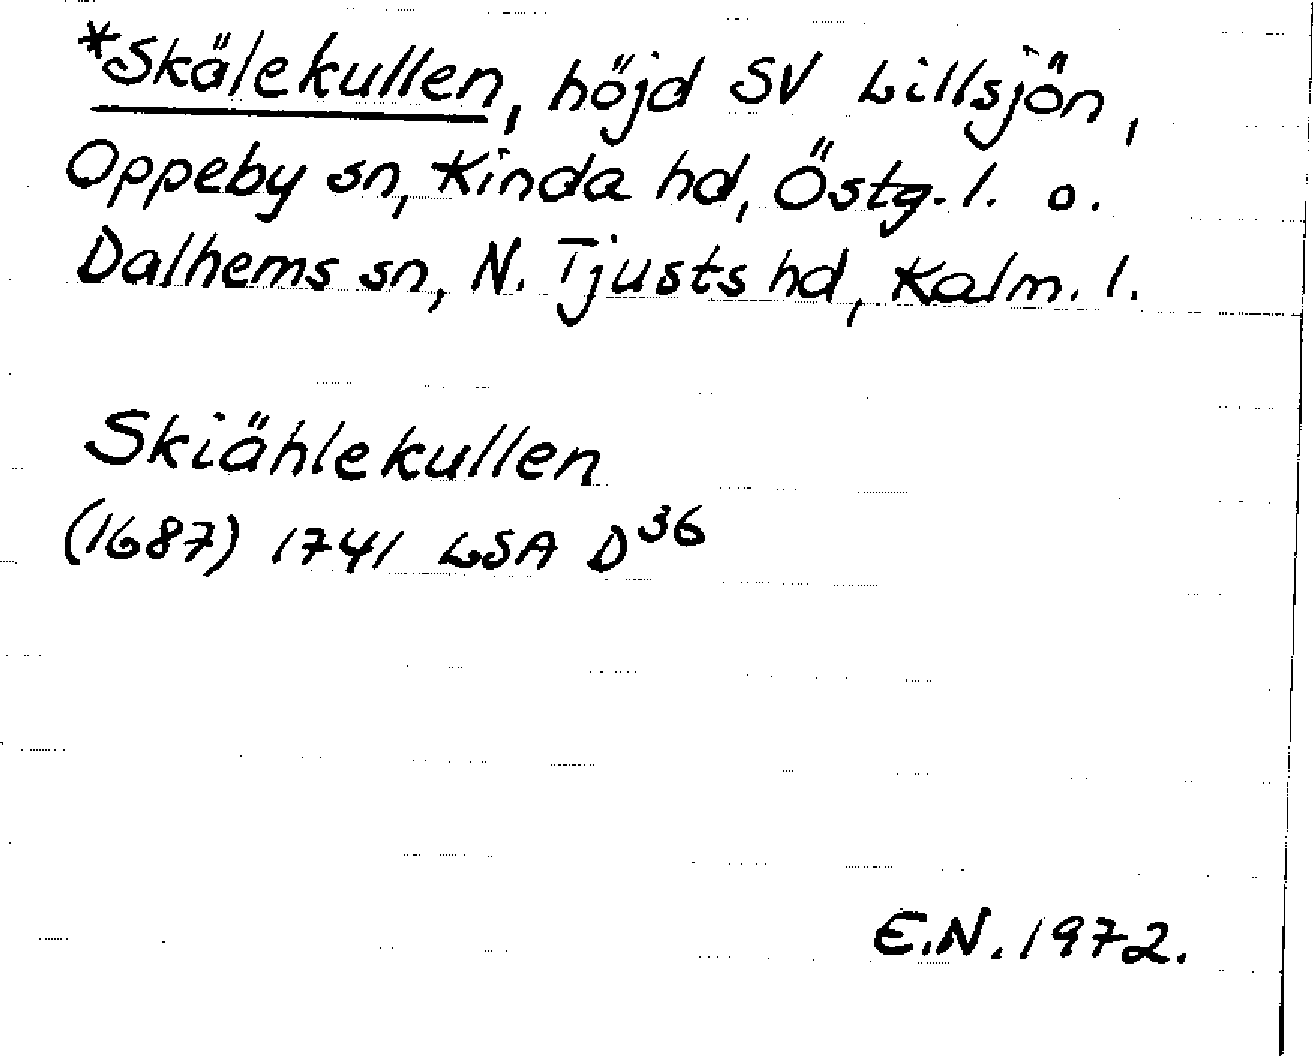 *Skälekullen, höjd SV Lillsjön,
Oppeby sn, Kinda hd, Östg. l. o.
Dalhems sn, N. Tjusts hd, Kalm. l.
Skiählekullen
(1687) 1741 LSA D³⁶
E.N. 1972.